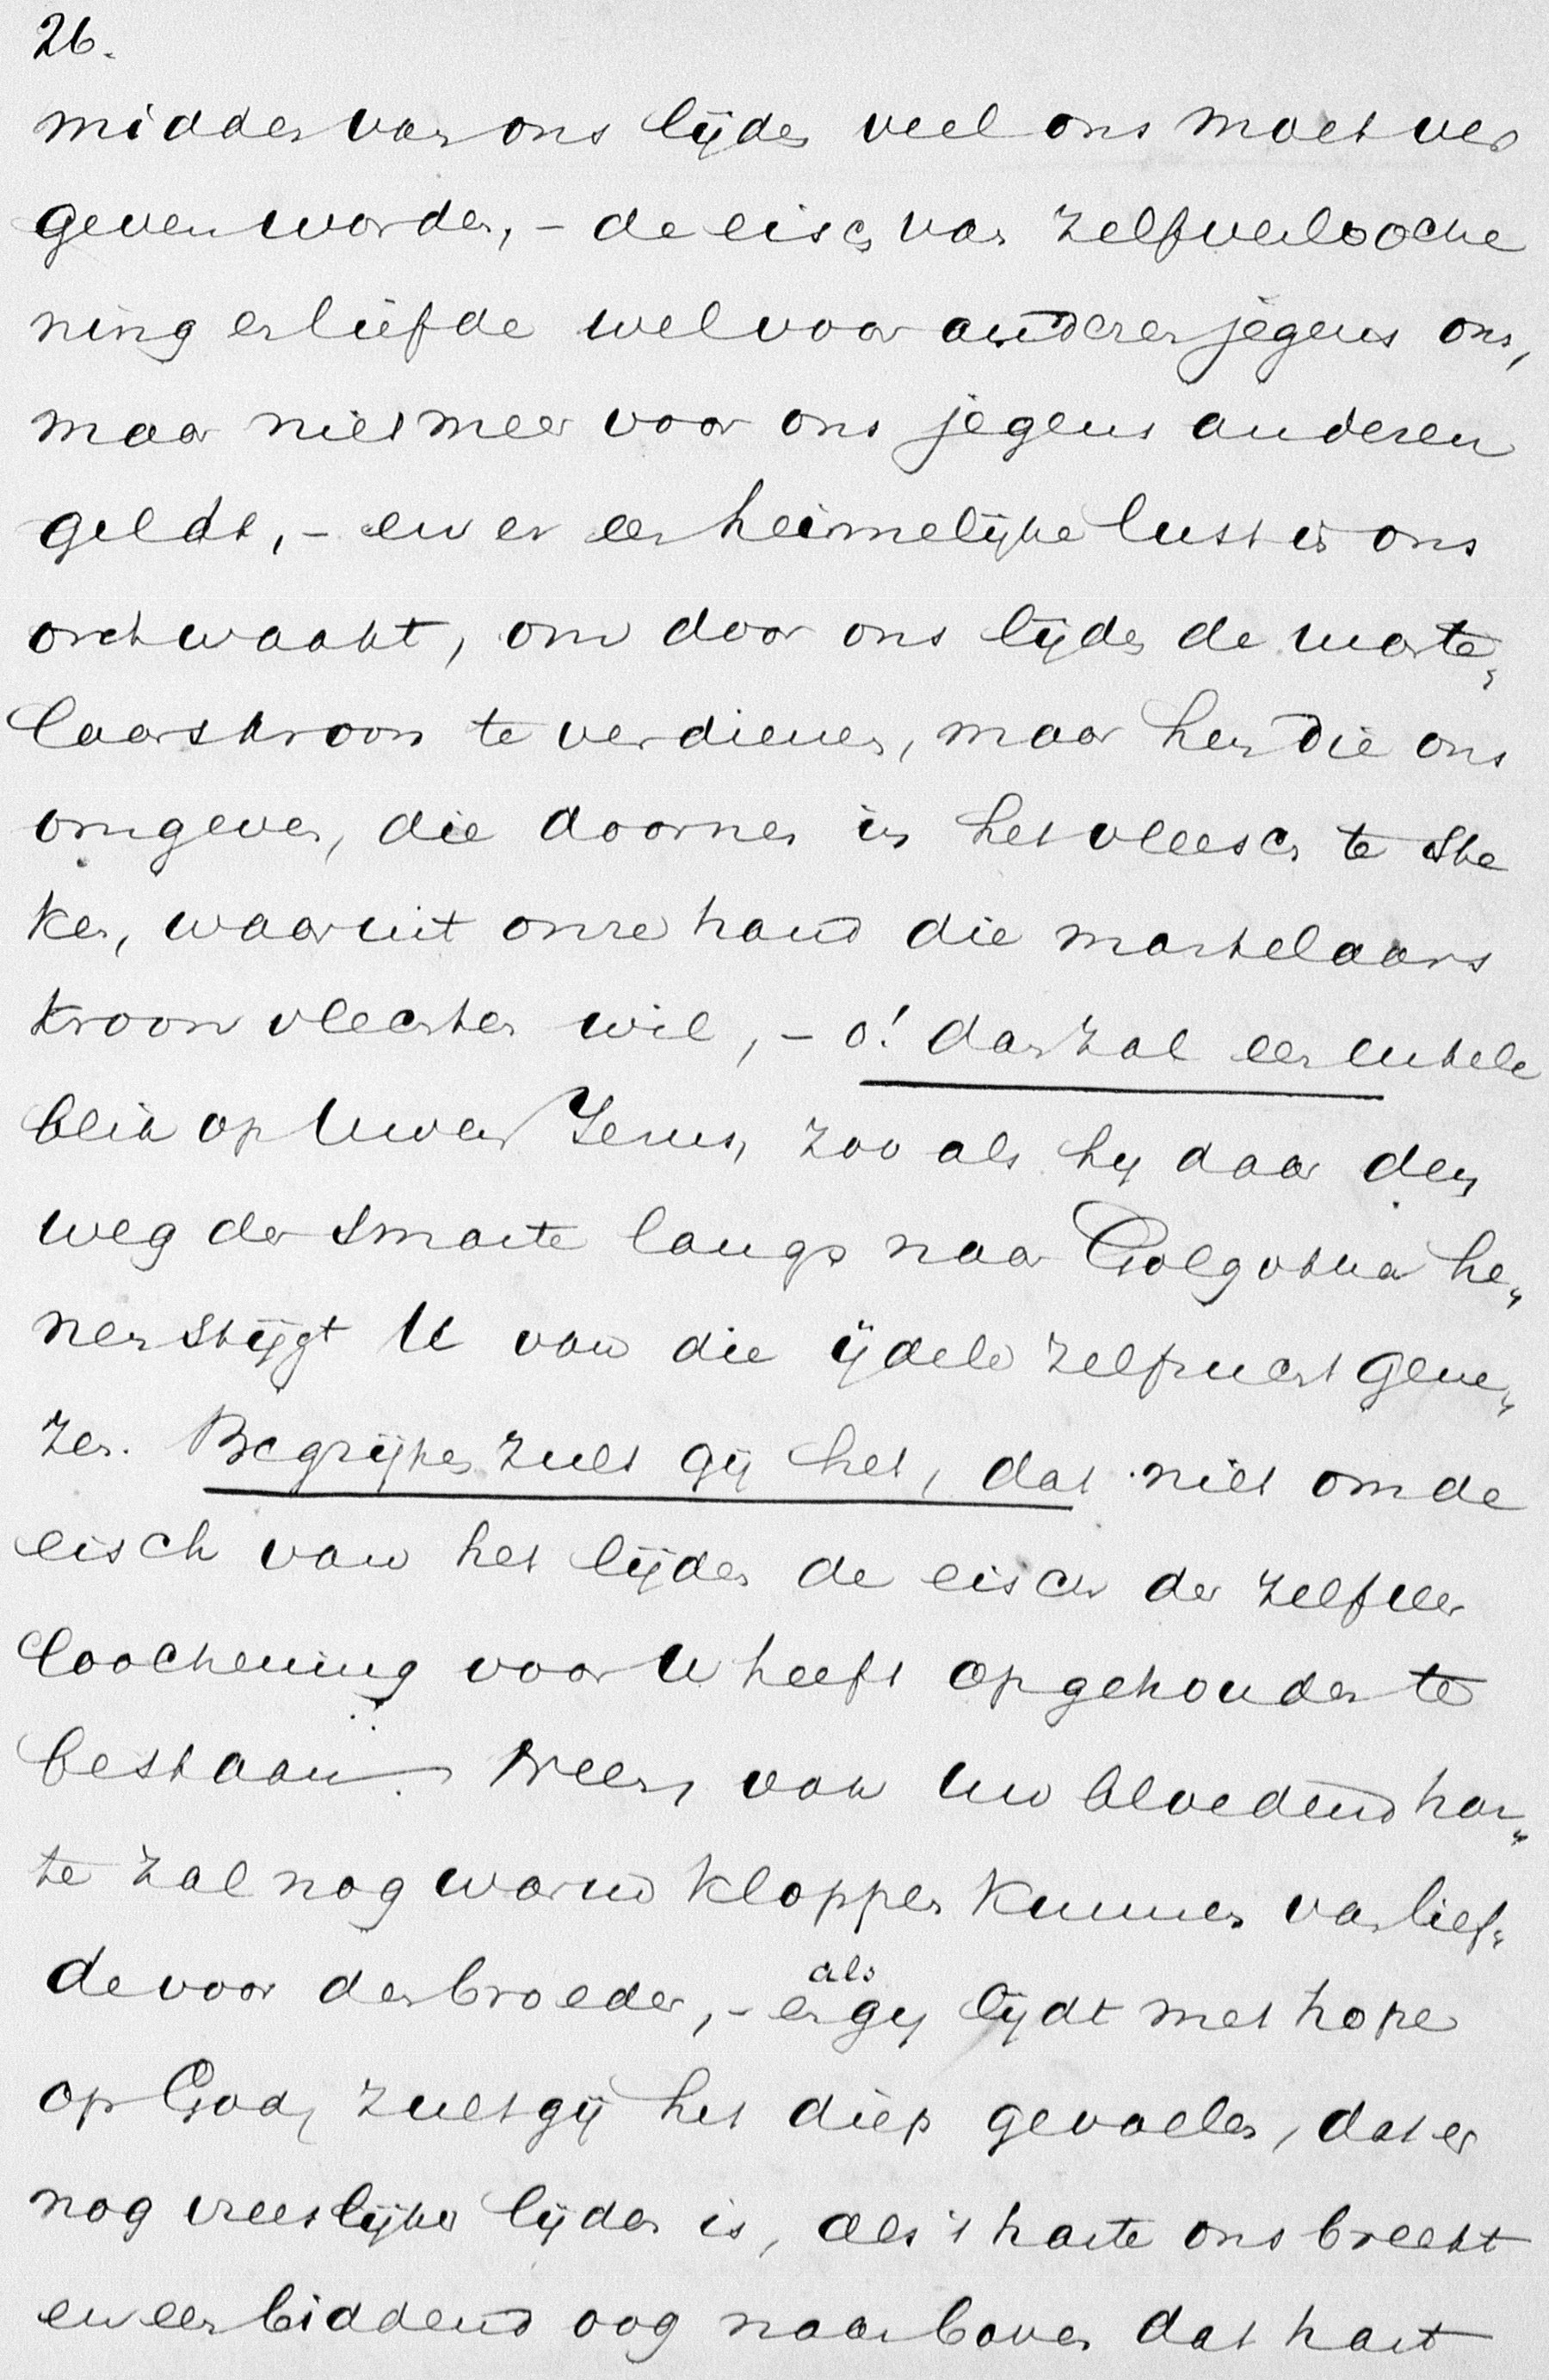 26.
midden van ons lijden veel ons moet ver
geven worden, - de eisch van zelfverlooche
ning en liefde wel voor anderen jegens ons,
maar niet meer voor ons jegens anderen
geldt, - en er een heimelijke lust in ons
ontwaakt, om door ons lijden de marte„
laarskroon te verdienen, maar hen die ons
omgeven, die doornen in het vleesch te ste
ken, waaruit onze hand die martelaars
kroon vlechten wil, - o! dan zal een enkele
blik op Uwen Jezus, zoo als hij daar den
weg der smarte langs naar Golgotha he„
nen stijgt U van die ijdele zelfzucht gene„
zen. Begrijpen zult gij het, dat niet om de
eisch van het lijden de eisch der zelfver
loochening voor U heeft opgehouden te
bestaan. Neen, ook uw bloedend har„
te zal nog warm kloppen kunnen van lief„
de voor den broeder, - en als gij lijdt met hope
op God, zult gij het diep gevoelen, dat er
nog vreeslijker lijden is, als 't harte ons breekt
en een biddend oog naar boven dat hart